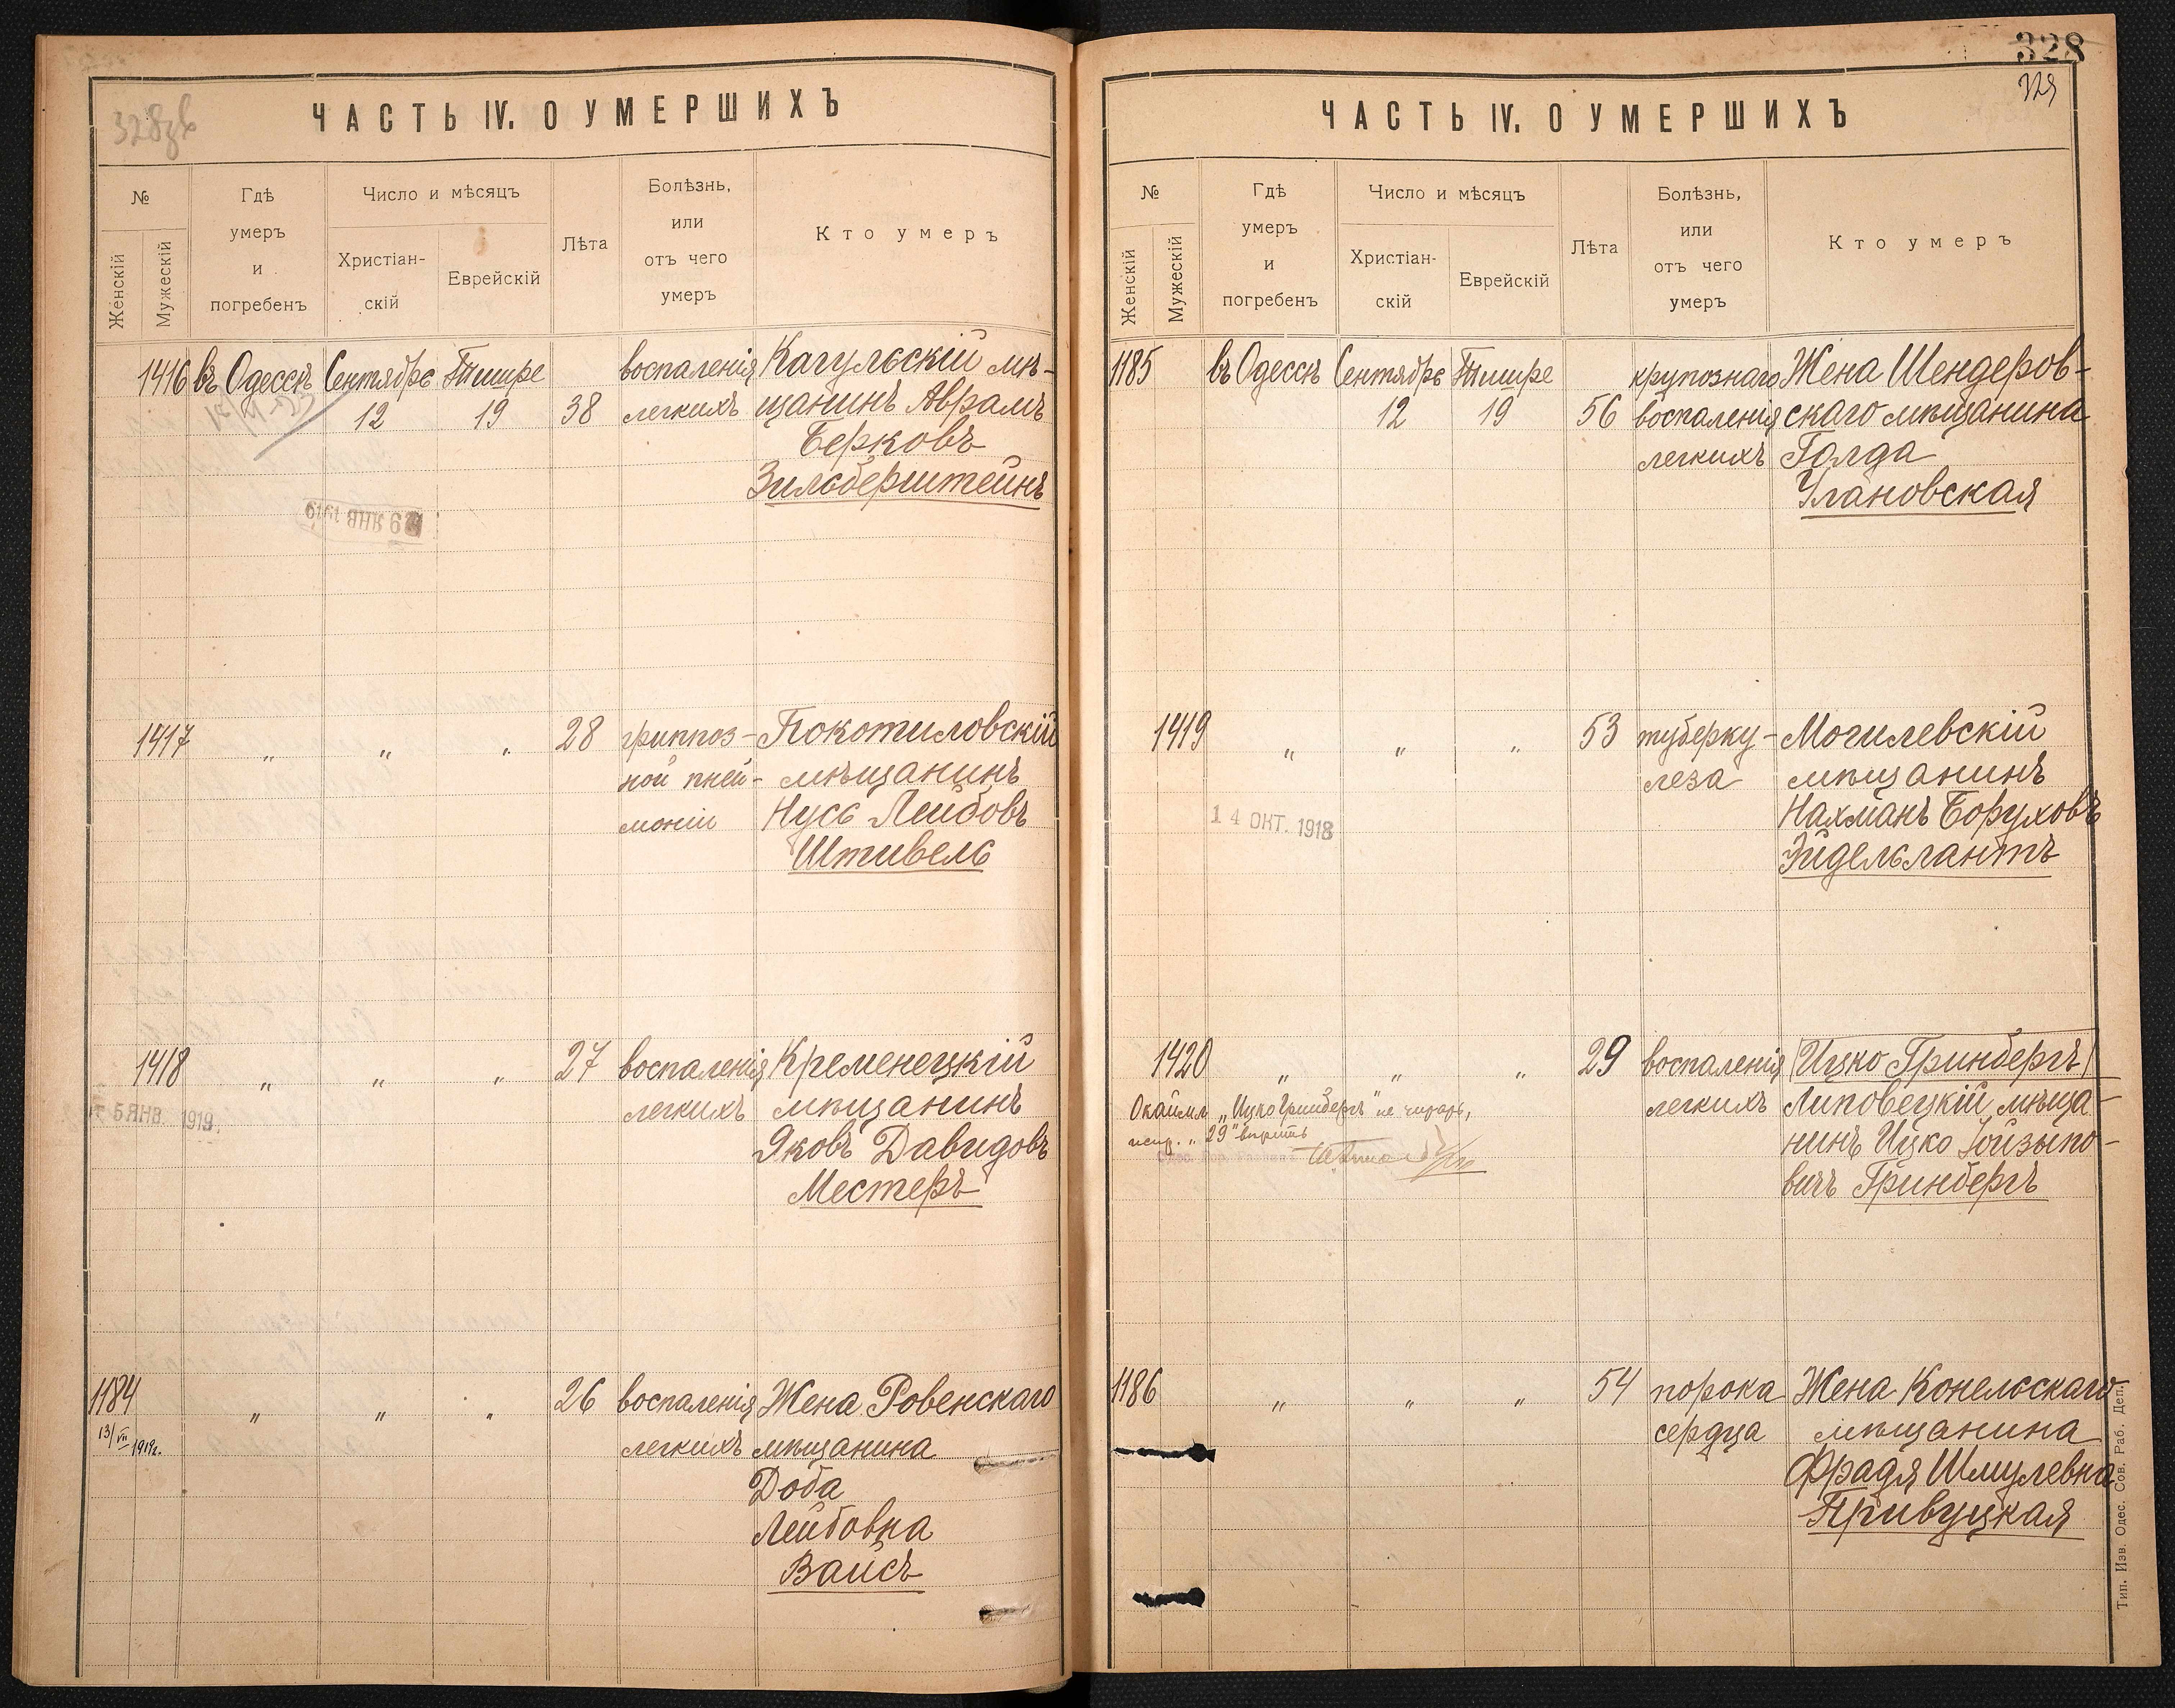 328
ЧАСТЬ IV. О УМЕРШИХЪ
№
Женскій
Мужескій
Гдѣ
умеръ
и
погребенъ
Число и мѣсяцъ
Христіан-
скій
Еврейскій
Лѣта
Болѣзнь,
или
отъ чего
умеръ
Кто умеръ
1416 въ Одессѣ Сентябрь Тишре воспаленія Кагульскій мѣ-
12 19 38 легкихъ щанинъ Аврамъ
Берковъ
Зильберштейнъ
9 ЯНВ 1919
1417 " " " 28 гриппоз- Покотиловскій
ной пней- мѣщанинъ
моніи Нусь Лейбовъ
Штивель
1418 " " " 27 воспаленія Кременецкій
5 ЯНВ. 1919. легкихъ мѣщанинъ
Яковъ Давидовъ
Местеръ
1184 " " " 26 воспаленія Жена Ровенскаго
13/VII 1919г. легкихъ мѣщанина
Доба
Лейбовна
Вайсъ
328
329
ЧАСТЬ IV. О УМЕРШИХЪ
№
Женскій
Мужескій
Гдѣ
умеръ
и
погребенъ
Число и мѣсяцъ
Христіан-
скій
Еврейскій
Лѣта
Болѣзнь,
или
отъ чего
умеръ
Кто умеръ
1185 въ Одессѣ Сентябрь Тишре крупознаго Жена Шендеров-
12 19 56 воспаленія скаго мѣщанина
легкихъ Голда
Улановская
1419 " " " 53 туберку- Могилевскій
леза мѣщанинъ
14 ОКТ. 1918 Нахманъ Боруховъ
Эйдельлантъ
1420 " " " 29 воспаленія Ицко Гринбергъ
легкихъ Липовецкій мѣща-
Окаймл. „Ицко Гринбергъ" не читать,
испр. „29" вѣрить
нинъ Ицко Іойзыпо-
вичъ Гринбергъ
1186 " " " 54 порока Жена Конельскаго
сердца мѣщанина
Фрадя Шмулевна
Привуцкая
Тип. Изв. Одес. Сов. Раб. Деп.